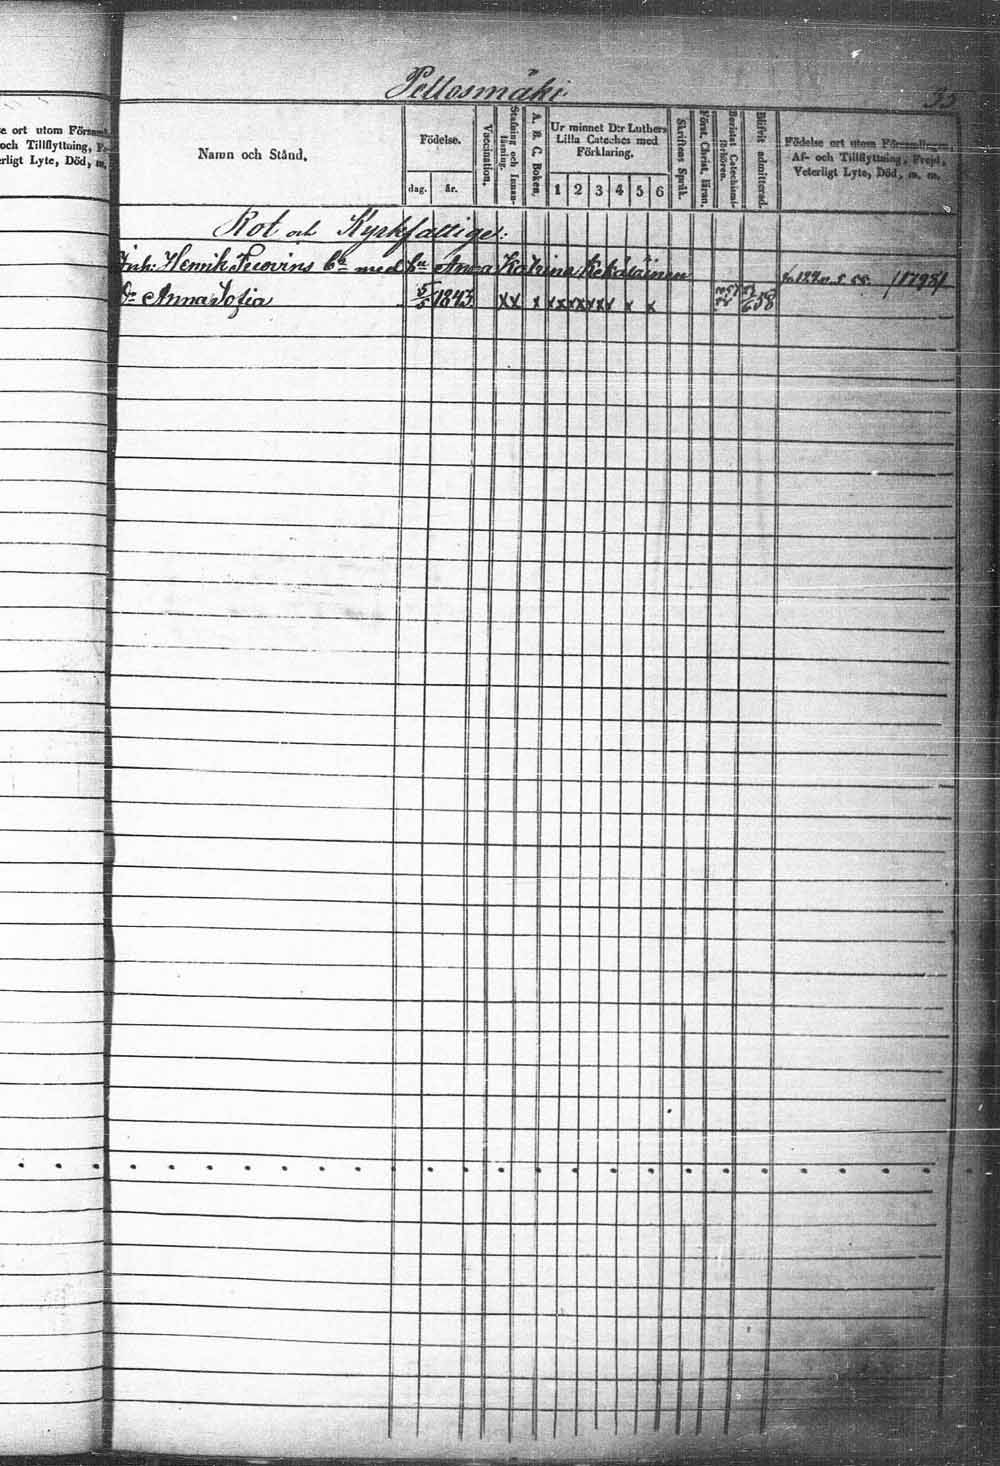 Pellosmäki
35
e ort utom Försam
och Tillflyttning, Fr
rligt Lyte, Död, m.
Namn och Stånd.
Födelse.
dag. år.
Vaccination.
Stafning och Innanläsning.
A. B. C. Boken.
Ur minnet D:r Luthers
Lilla Cateches med
Förklaring.
1 2 3 4 5 6
Skriftens Språk.
Först. Christ. läran.
Bevistat Catechismiförhören.
Blifvit admitterad.
Födelse ort utom Församlingen,
Af- och Tillflyttning, Frejd,
Veterligt Lyte, Död, m. m.
Rot och Kyrkfattige:
Inh: Henrik med Anna Katrina
/1798/
Dr Anna Sofia 5/5 1843 x x x x x x x x x x x 58